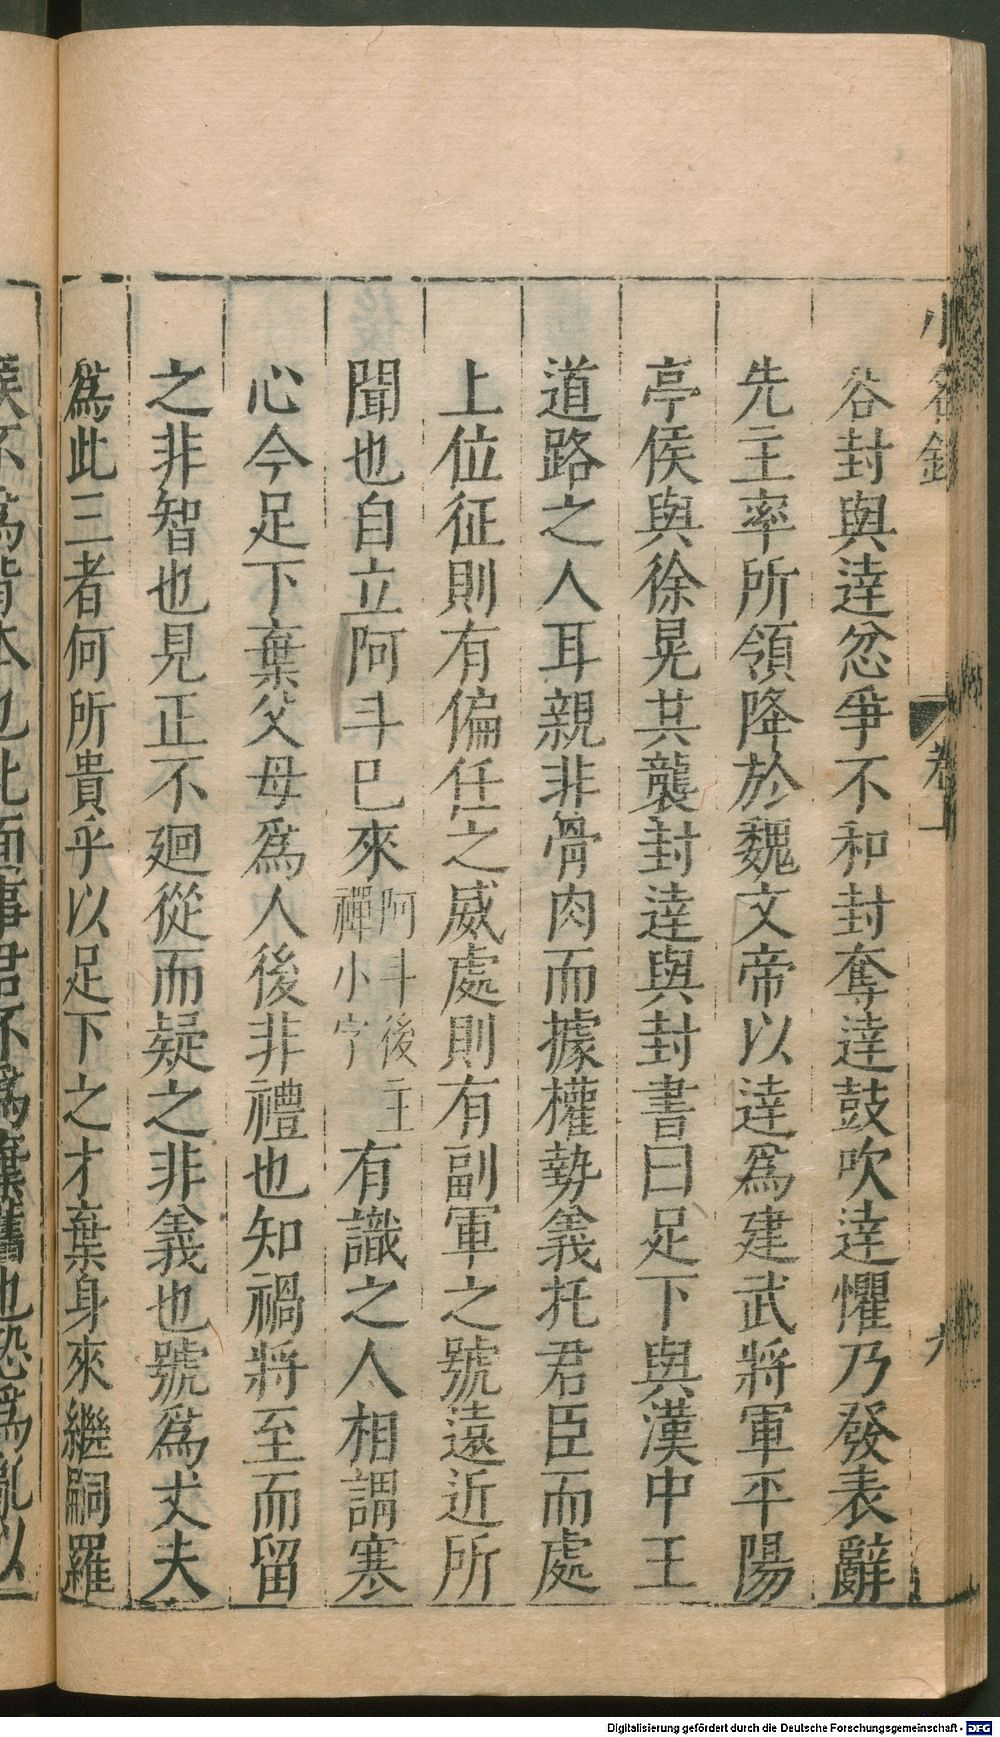 小名錄 卷上 六
咎封與達忿爭不和封奪達鼓吹達懼乃發表辭
先主率所領降於魏文帝以達為建武將軍平陽
亭侯與徐晃共襲封達與封書曰足下與漢中王
道路之人耳親非骨肉而據權勢義托君臣而處
上位征則有偏任之威處則有副軍之號遠近所
聞也自立阿斗已來阿斗後主禪小字有識之人相謂寒
心今足下棄父母為人後非禮也知禍將至而留
之非智也見正不廻從而疑之非義也號為丈夫
為此三者何所貴乎以足下之才棄身來繼嗣羅
侯不為背本也北面事君不為棄舊也恐為亂以
Digitalisierung gefördert durch die Deutsche Forschungsgemeinschaft - DFG